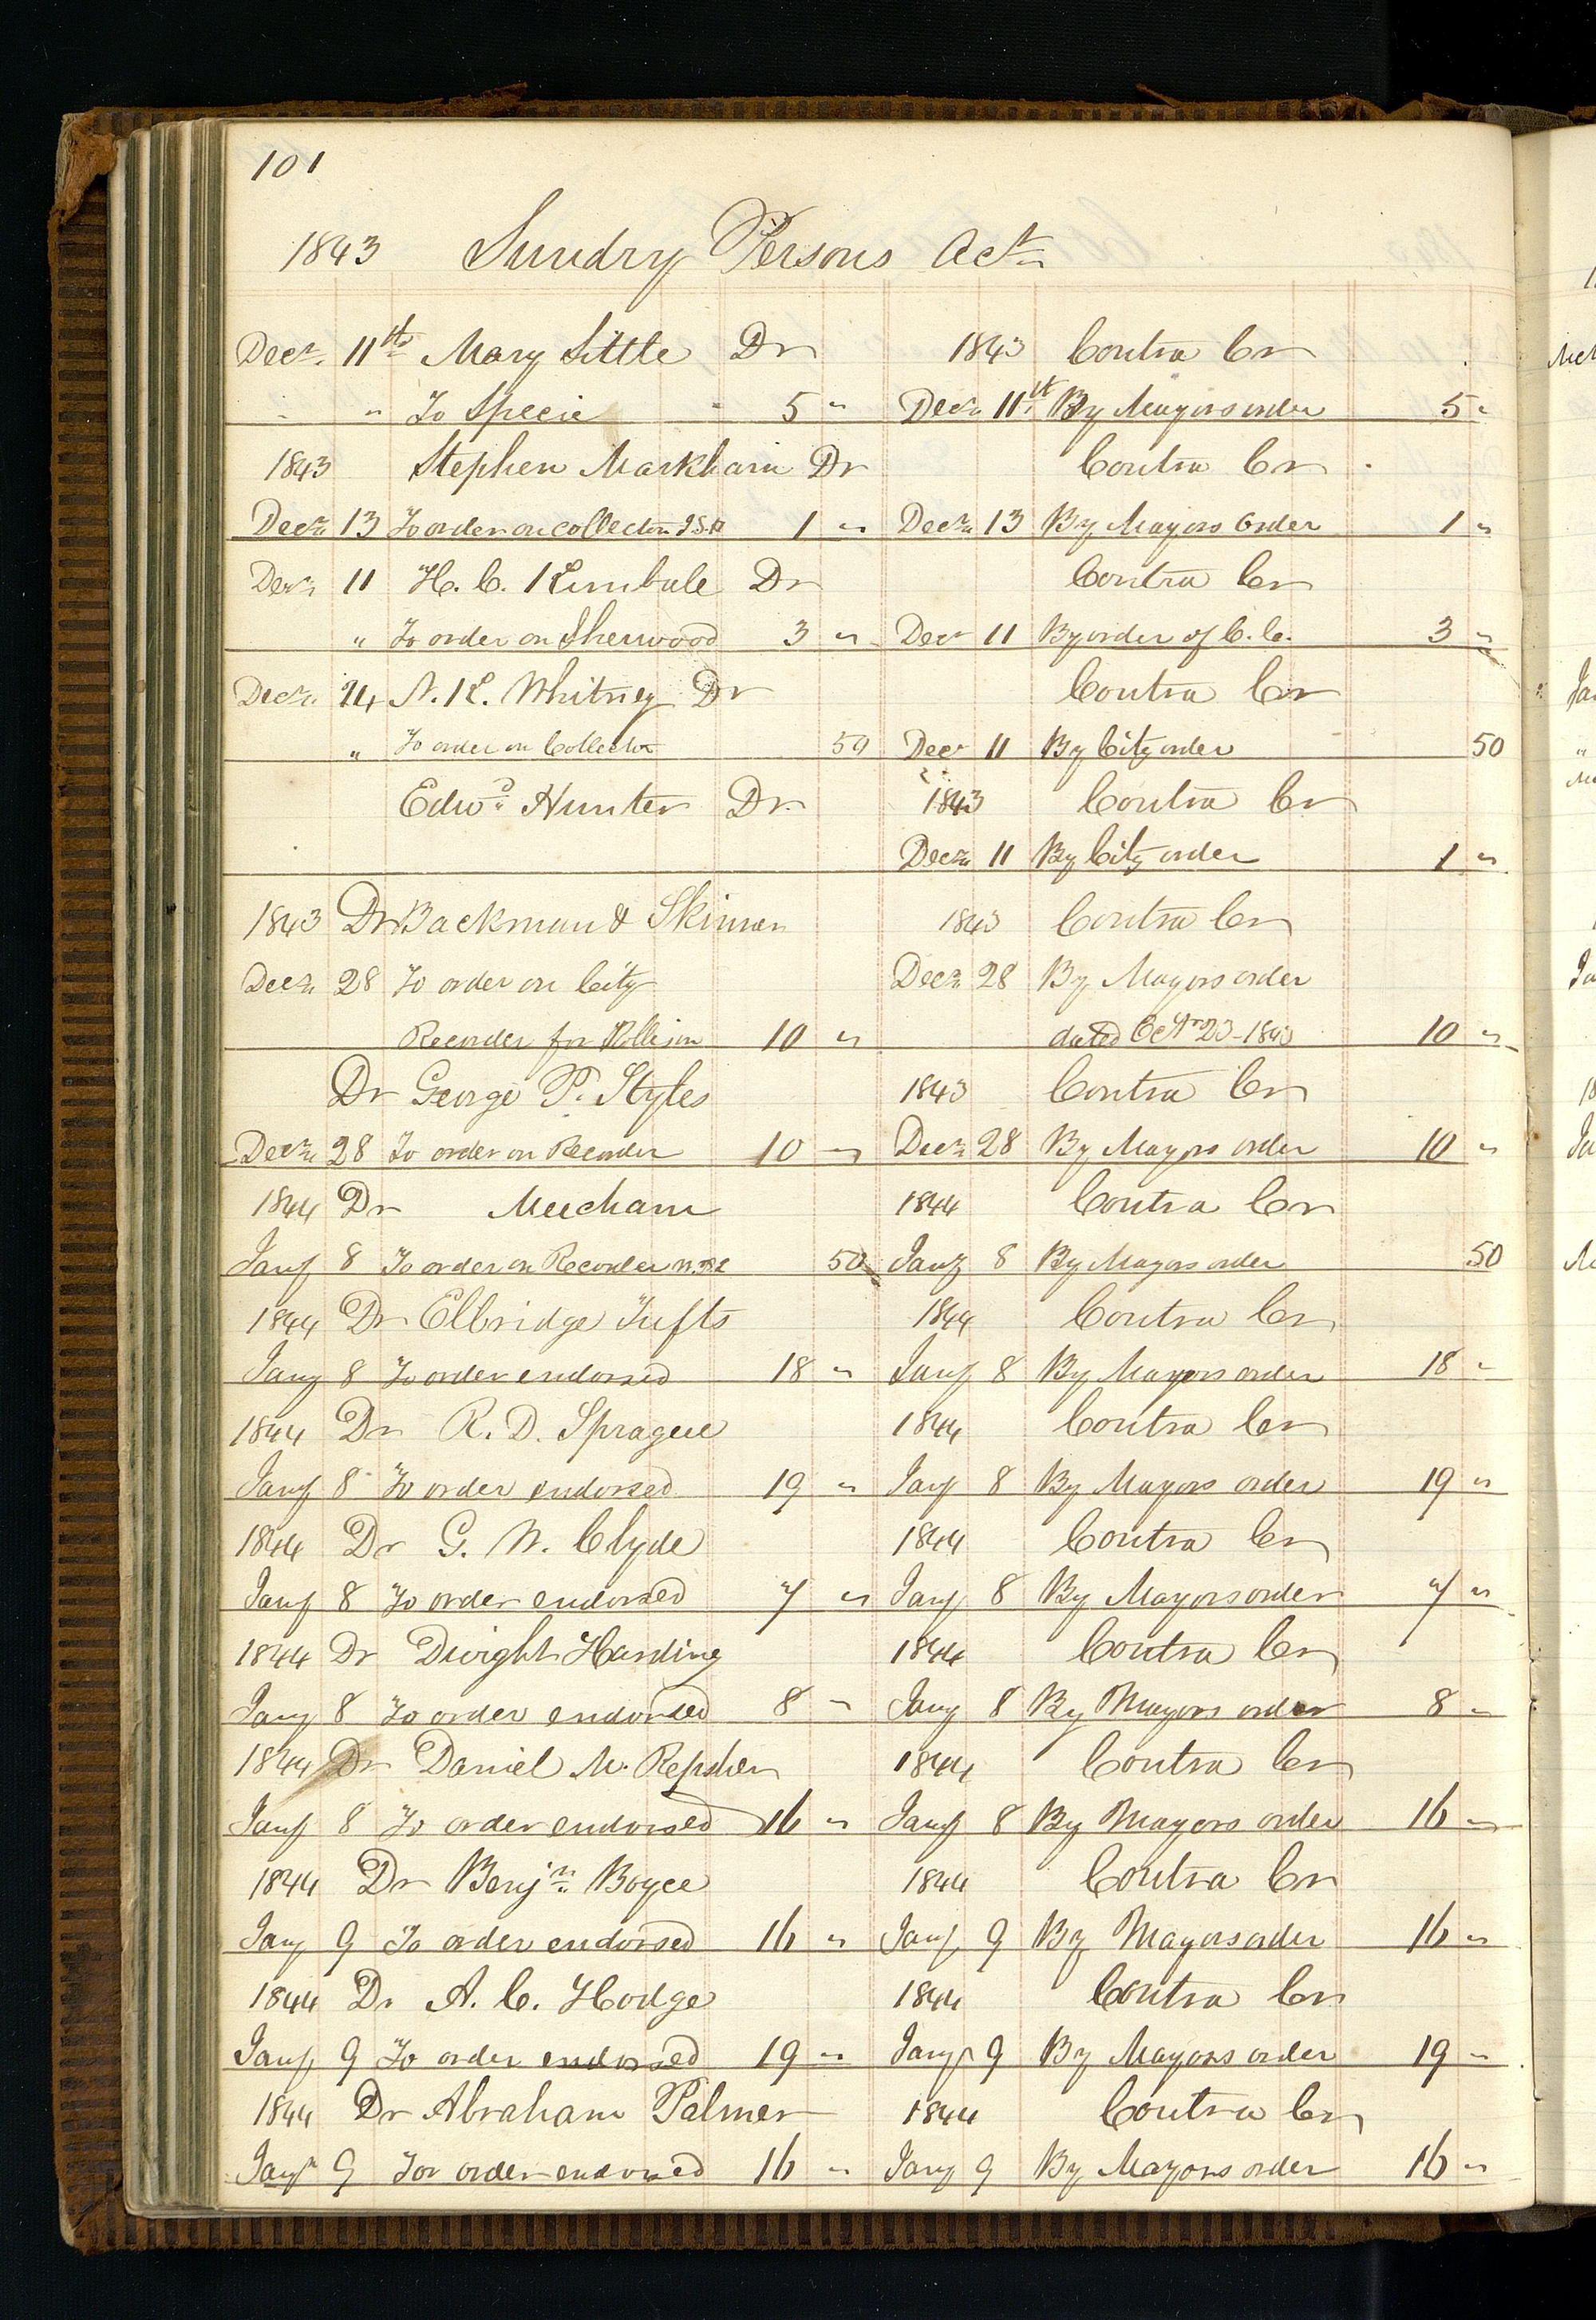 101
1843 Sundry Persons Act
Decr 11th Mary Little Dr 1843 Contra Cr
" " To Specie 5 " Decr 11th By Mayors order 5 "
1843 Stephen Markham Dr Contra Cr
Decr 13 To order on Collector 1 " Decr 13 By Mayors Order 1 "
Decr 11 H. C. Kimbale Dr Contra Cr
" To order on Sherwood 3 " Decr 11 By order of C. C. 3 "
Decr 14 N. K. Whitney Dr Contra Cr
" To order on Collector 50 Decr 11 By City order 50
Edwd Hunter Dr 1843 Contra Cr
Decr 11 By City order 1 "
1843 Dr Backman & Skinner 1843 Contra Cr
Decr 28 To order on City Decr 28 By Mayors order
Recorder for 10 " dated Octr 23 - 1843 10 "
Dr George P. Styles 1843 Contra Cr
Decr 28 To order on Recorder 10 " Decr 28 By Mayors order 10 "
1844 Dr Mecham 1844 Contra Cr
Jany 8 To order on Recorder 50 Jany 8 By Mayors order 50
1844 Dr Elbridge Tufts 1844 Contra Cr
Jany 8 To order endorsed 18 " Jany 8 By Mayors order 18 "
1844 Dr R. D. Sprague 1844 Contra Cr
Jany 8 To order endorsed 19 " Jany 8 By Mayors order 19 "
1844 Dr G. W. Clyde 1844 Contra Cr
Jany 8 To order endorsed 7 " Jany 8 By Mayors order 7 "
1844 Dr Dwight Harding 1844 Contra Cr
Jany 8 To order endorsed 8 " Jany 8 By Mayors order 8 "
1844 Dr Daniel M. Repsher 1844 Contra Cr
Jany 8 To order endorsed 16 " Jany 8 By Mayors order 16 "
1844 Dr Benjn Boyce 1844 Contra Cr
Jany 9 To order endorsed 16 " Jany 9 By Mayors order 16 "
1844 Dr A. C. Hodge 1844 Contra Cr
Jany 9 To order endorsed 19 " Jany 9 By Mayors order 19 "
1844 Dr Abraham Palmer 1844 Contra Cr
Jany 9 For order endorsed 16 " Jany 9 By Mayors order 16 "